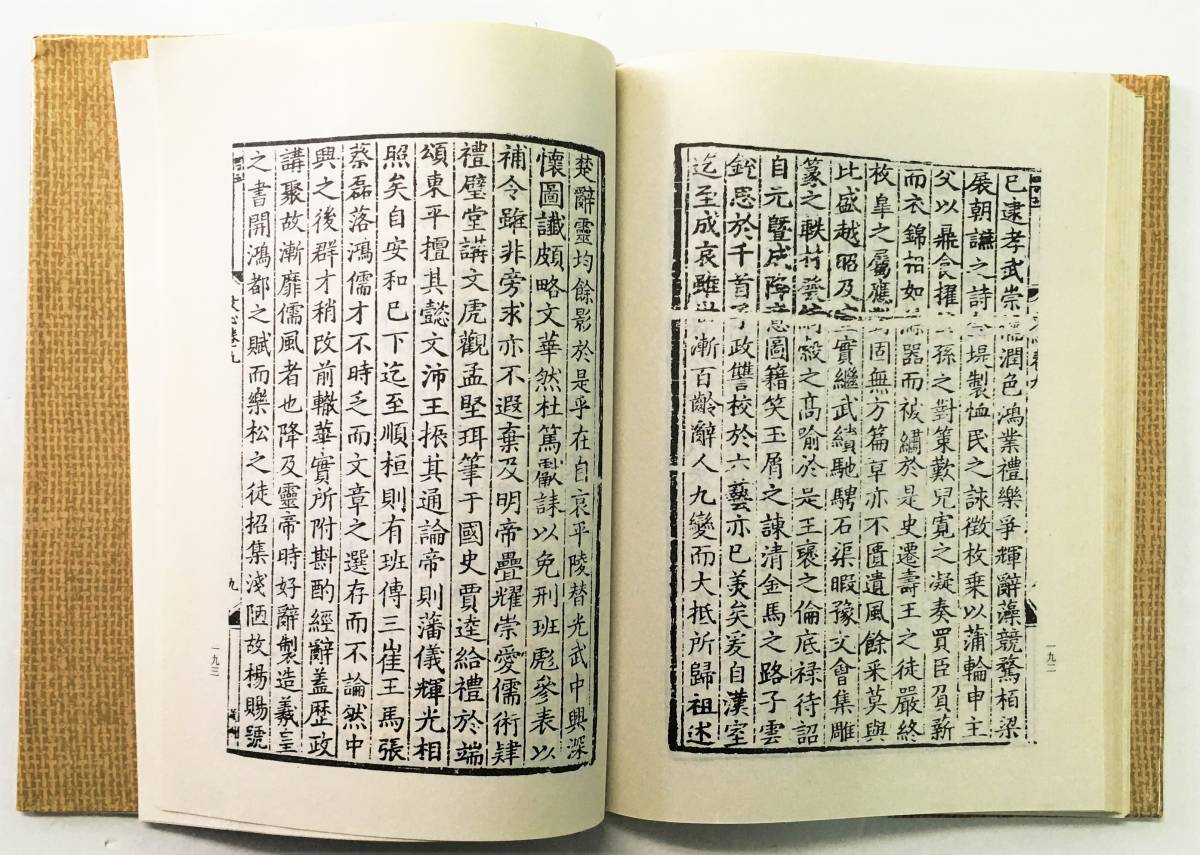 已逮孝武崇儒潤色鴻業禮樂爭輝辭藻競騖栢梁
展朝讌之詩金堤製恤民之詠徵枚乗以蒲輪申主
父以鼎食擢公孫之對策歎兒寛之凝奏買臣負薪
而衣錦相如滌器而被繡於是史遷壽王之徒嚴終
枚臯之屬應對固無方篇章亦不匱遺風餘采莫與
比盛越昭及宣實繼武績馳騁石渠暇豫文會集雕
篆之軼材發綺縠之高喻於是王襃之倫底禄待詔
自元暨成降意圖籍笑玉屑之諫清金馬之路子雲
鋭思於千首子政讎校於六藝亦已羙矣爰自漢室
迄至成哀雖世漸百齡辭人九變而大抵所歸祖述
一九二
楚辭靈均餘影於是乎在自哀平陵替光武中興深
懷圖讖頗略文華然杜篤獻誄以免刑班彪參表以
補令雖非旁求亦不遐棄及明帝疊耀崇愛儒術肆
禮璧堂講文虎觀孟堅珥筆于國史賈逵給禮於端
頌東平擅其懿文沛王振其通論帝則藩儀輝光相
照矣自安和已下迄至順桓則有班傅三崔王馬張
蔡磊落鴻儒才不時乏而文章之選存而不論然中
興之後群才稍改前轍華實所附斟酌經辭蓋歴政
講聚故漸靡儒風者也降及靈帝時好辭製造羲皇
之書開鴻都之賦而樂松之徒招集淺陋故楊賜號
文心卷九
九
一九三